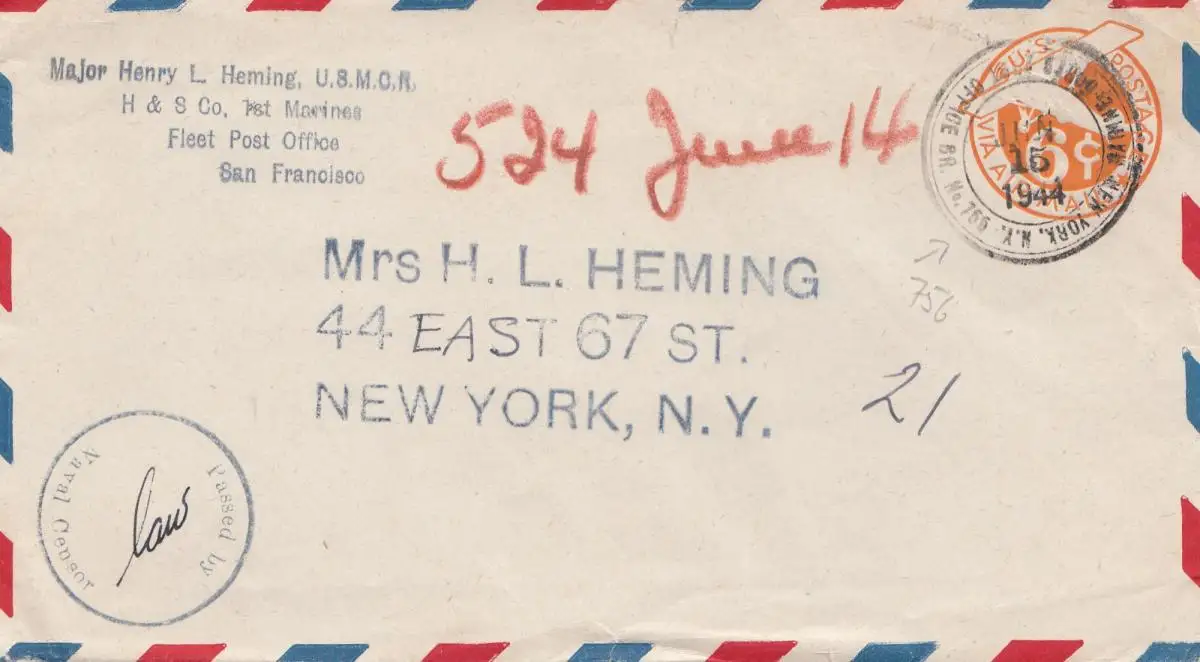 Major Henry L. Heming, U.S.M.C.R.
H & S Co, 1st Marines
Fleet Post Office
San Francisco
524 June 14
U.S. POSTAGE
VIA AIR MAIL
6¢
15
1944
OFFICE BR. No. 766
NEW YORK, N.Y.
756
Mrs H. L. HEMING
44 EAST 67 ST.
NEW YORK, N.Y.
21
Passed by
Naval Censor
law